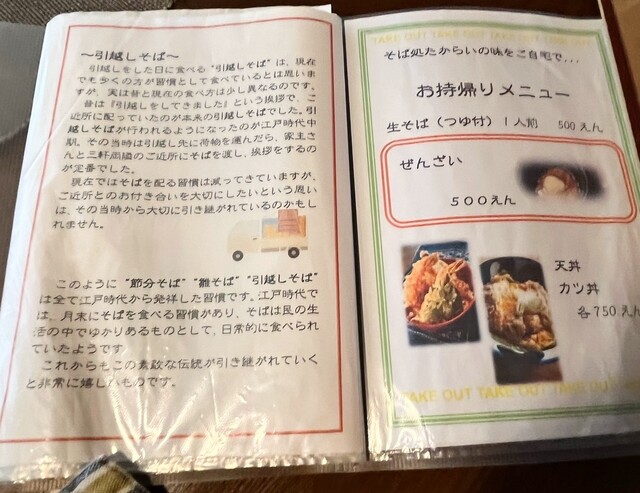 ～引越しそば～
引越しをした日に食べる“引越しそば”は、現在
でも多くの方が習慣として食べているとは思いま
すが、実は昔と現在の食べ方は少し異なるのです。
昔は『引越しをしてきました』という挨拶で、ご
近所に配っていたのが本来の引越しそばでした。引
越しそばが行われるようになったのが江戸時代中
期。その当時は引越し先に荷物を運んだら、家主さ
んと三軒両隣のご近所にそばを渡し、挨拶をするの
が定番でした。
現在ではそばを配る習慣は減ってきていますが、
ご近所とのお付き合いを大切にしたいという思い
は、その当時から大切に引き継がれているのかもし
れません。
このように“節分そば”“雛そば”“引越しそば”
は全て江戸時代から発祥した習慣です。江戸時代で
は、月末にそばを食べる習慣があり、そばは民の生
活の中でゆかりあるものとして、日常的に食べられ
ていたようです
これからもこの素敵な伝統が引き継がれていく
と非常に嬉しいものです。
TAKE OUT TAKE OUT TAKE OUT TAKE OUT
そば処たからいの味をご自宅で...
お持帰りメニュー
生そば（つゆ付）1人前 500えん
ぜんざい
500えん
天丼
カツ丼
各750えん
TAKE OUT TAKE OUT TAKE OUT TAKE OUT